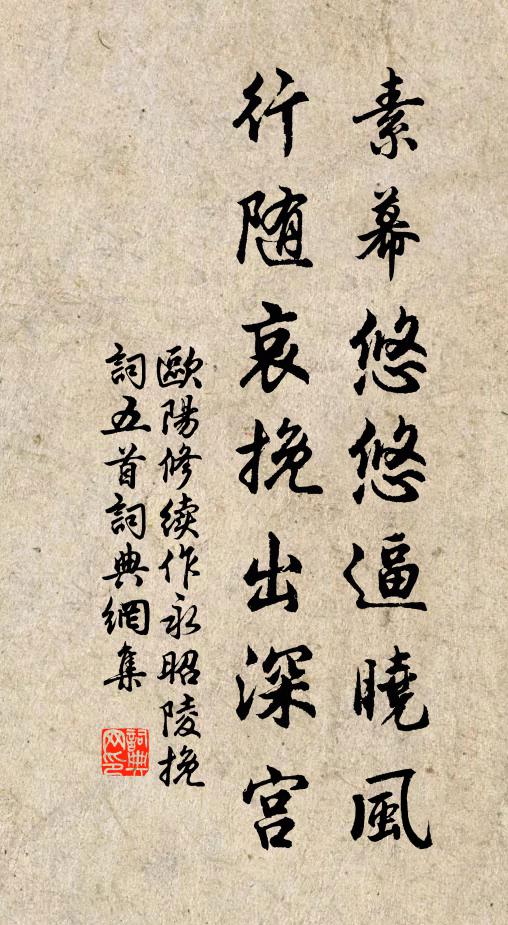 素幕悠悠逼曉風
行随哀挽出深宫
歐陽修續作永昭陵挽
詞五首詞典網集
詞典
网印